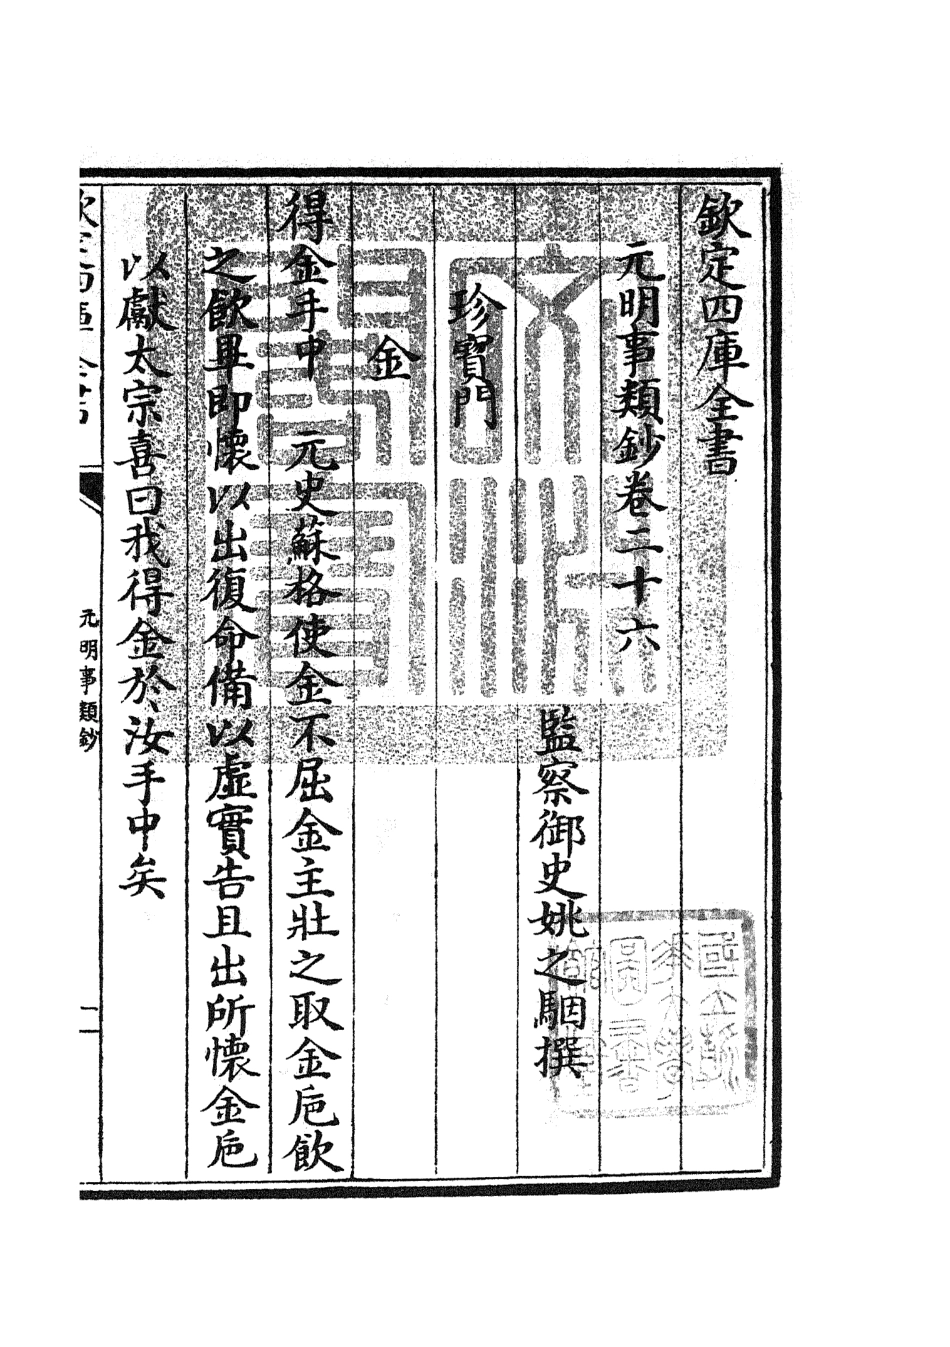 欽定四庫全書
元明事類鈔卷二十六
監察御史姚之駰撰
珍寶門
金
得金手中　元史蘇格使金不屈金主壯之取金巵飲
之飲畢即懷以出復命備以虛實告且出所懷金巵
以獻太宗喜曰我得金於汝手中矣
元明事類鈔